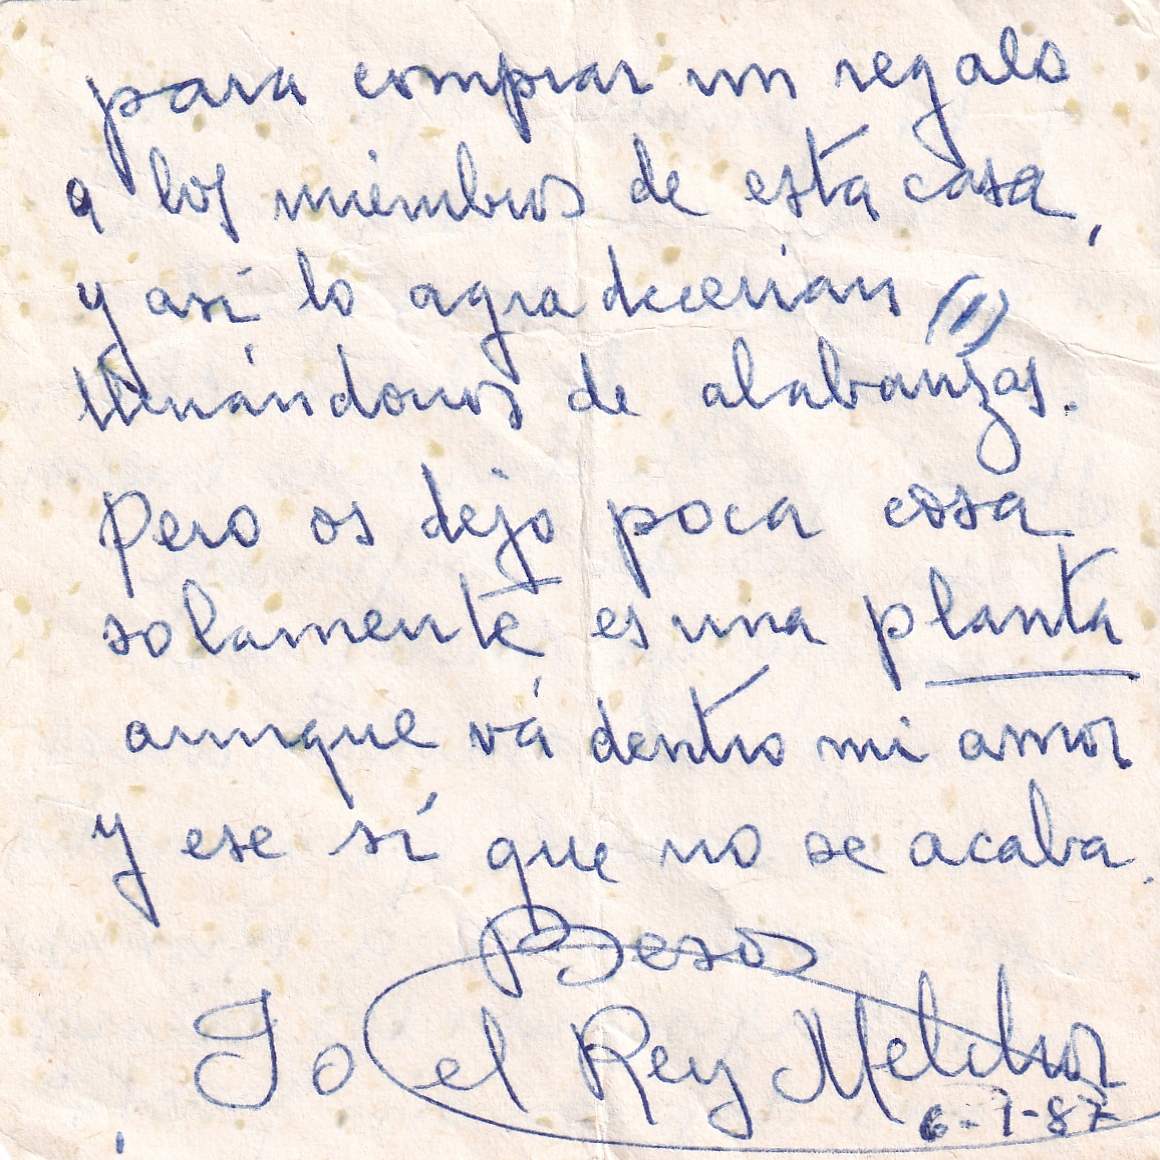 para comprar un regalo
a los miembros de esta casa,
y así lo agradecerian (1)
llenándonos de alabanzas.
Pero os dejo poca cosa
solamente es una planta
aunque vá dentro mi amor
y ese sí que no se acaba.
Besos
Yo el Rey Melchor
6-1-87